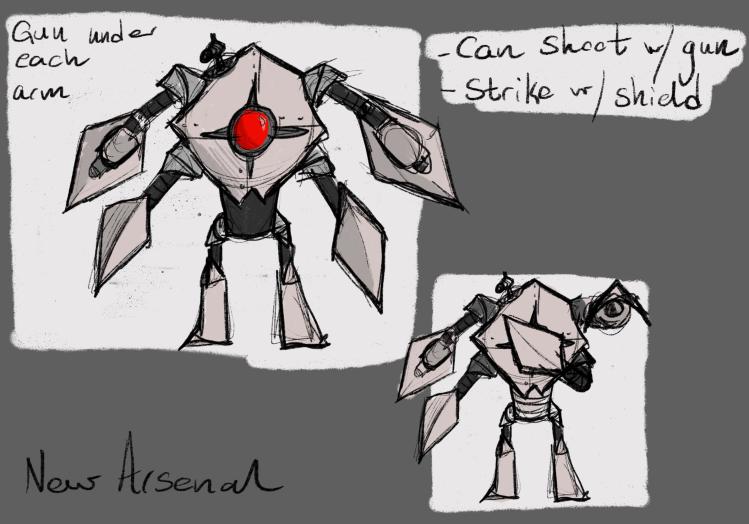 Gun under
each
arm
- Can shoot w/ gun
- Strike w/ shield
New Arsenal